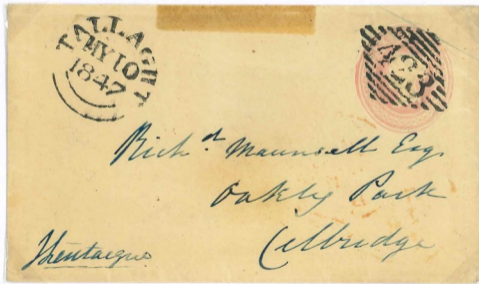 TALLAGHT
MY 10
1847
423
Rich.d Maunsell Esq.
Oakly Park
Cellbridge